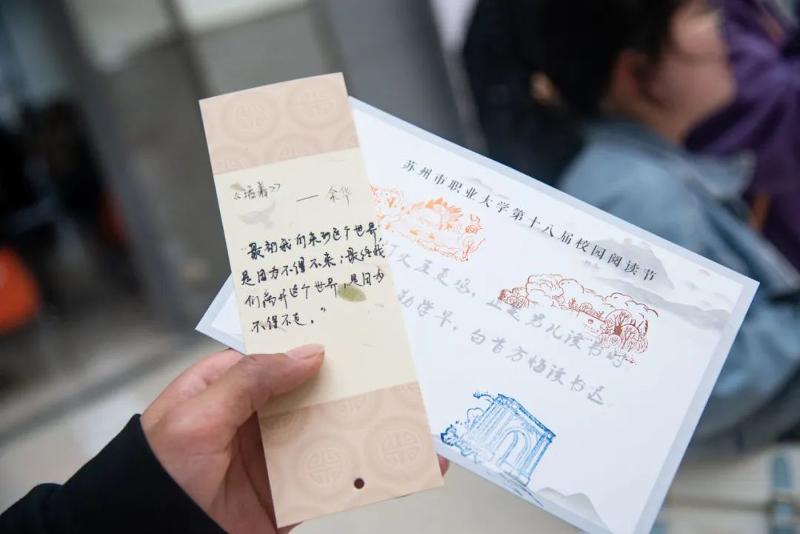 《活着》
——余华
"最初我们来到这个世界,
是因为不得不来;最终我
们离开这个世界,是因为
不得不走。"
苏州市职业大学第十八届校园阅读节
火五更鸡,正是男儿读书时
勤学早,白首方悔读书迟.